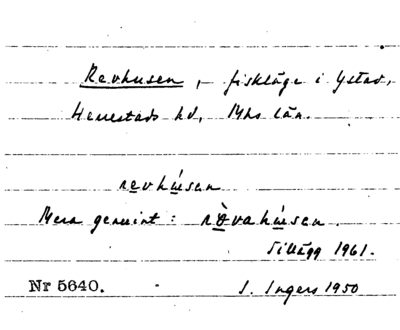 Revhusen, fiskläge i Ystad,
Herrestads hd, Mhs län.
revhúsen
Mera genuint: rǫ̀vahúsen.
Tillägg 1961.
Nr 5640. I. Ingers 1950